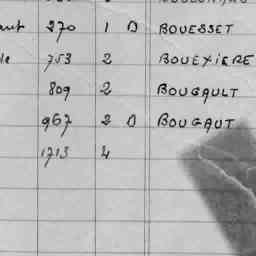 270 1 D BOUESSET
753 2 BOUEXIERE
809 2 BOUGAULT
967 2 D BOUGAUT
1713 4